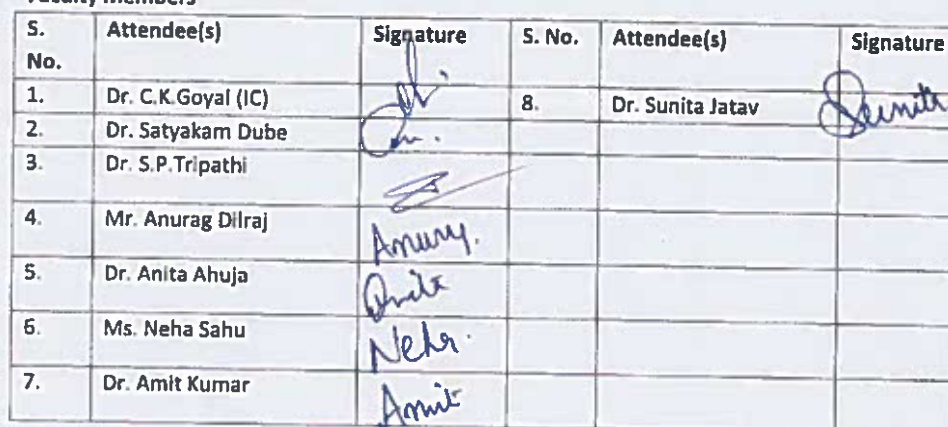 Faculty Members
S. No. Attendee(s) Signature S. No. Attendee(s) Signature
1. Dr. C.K.Goyal (IC) 8. Dr. Sunita Jatav Sunita
2. Dr. Satyakam Dube
3. Dr. S.P.Tripathi
4. Mr. Anurag Dilraj
5. Dr. Anita Ahuja Anita
6. Ms. Neha Sahu Neha
7. Dr. Amit Kumar Amit